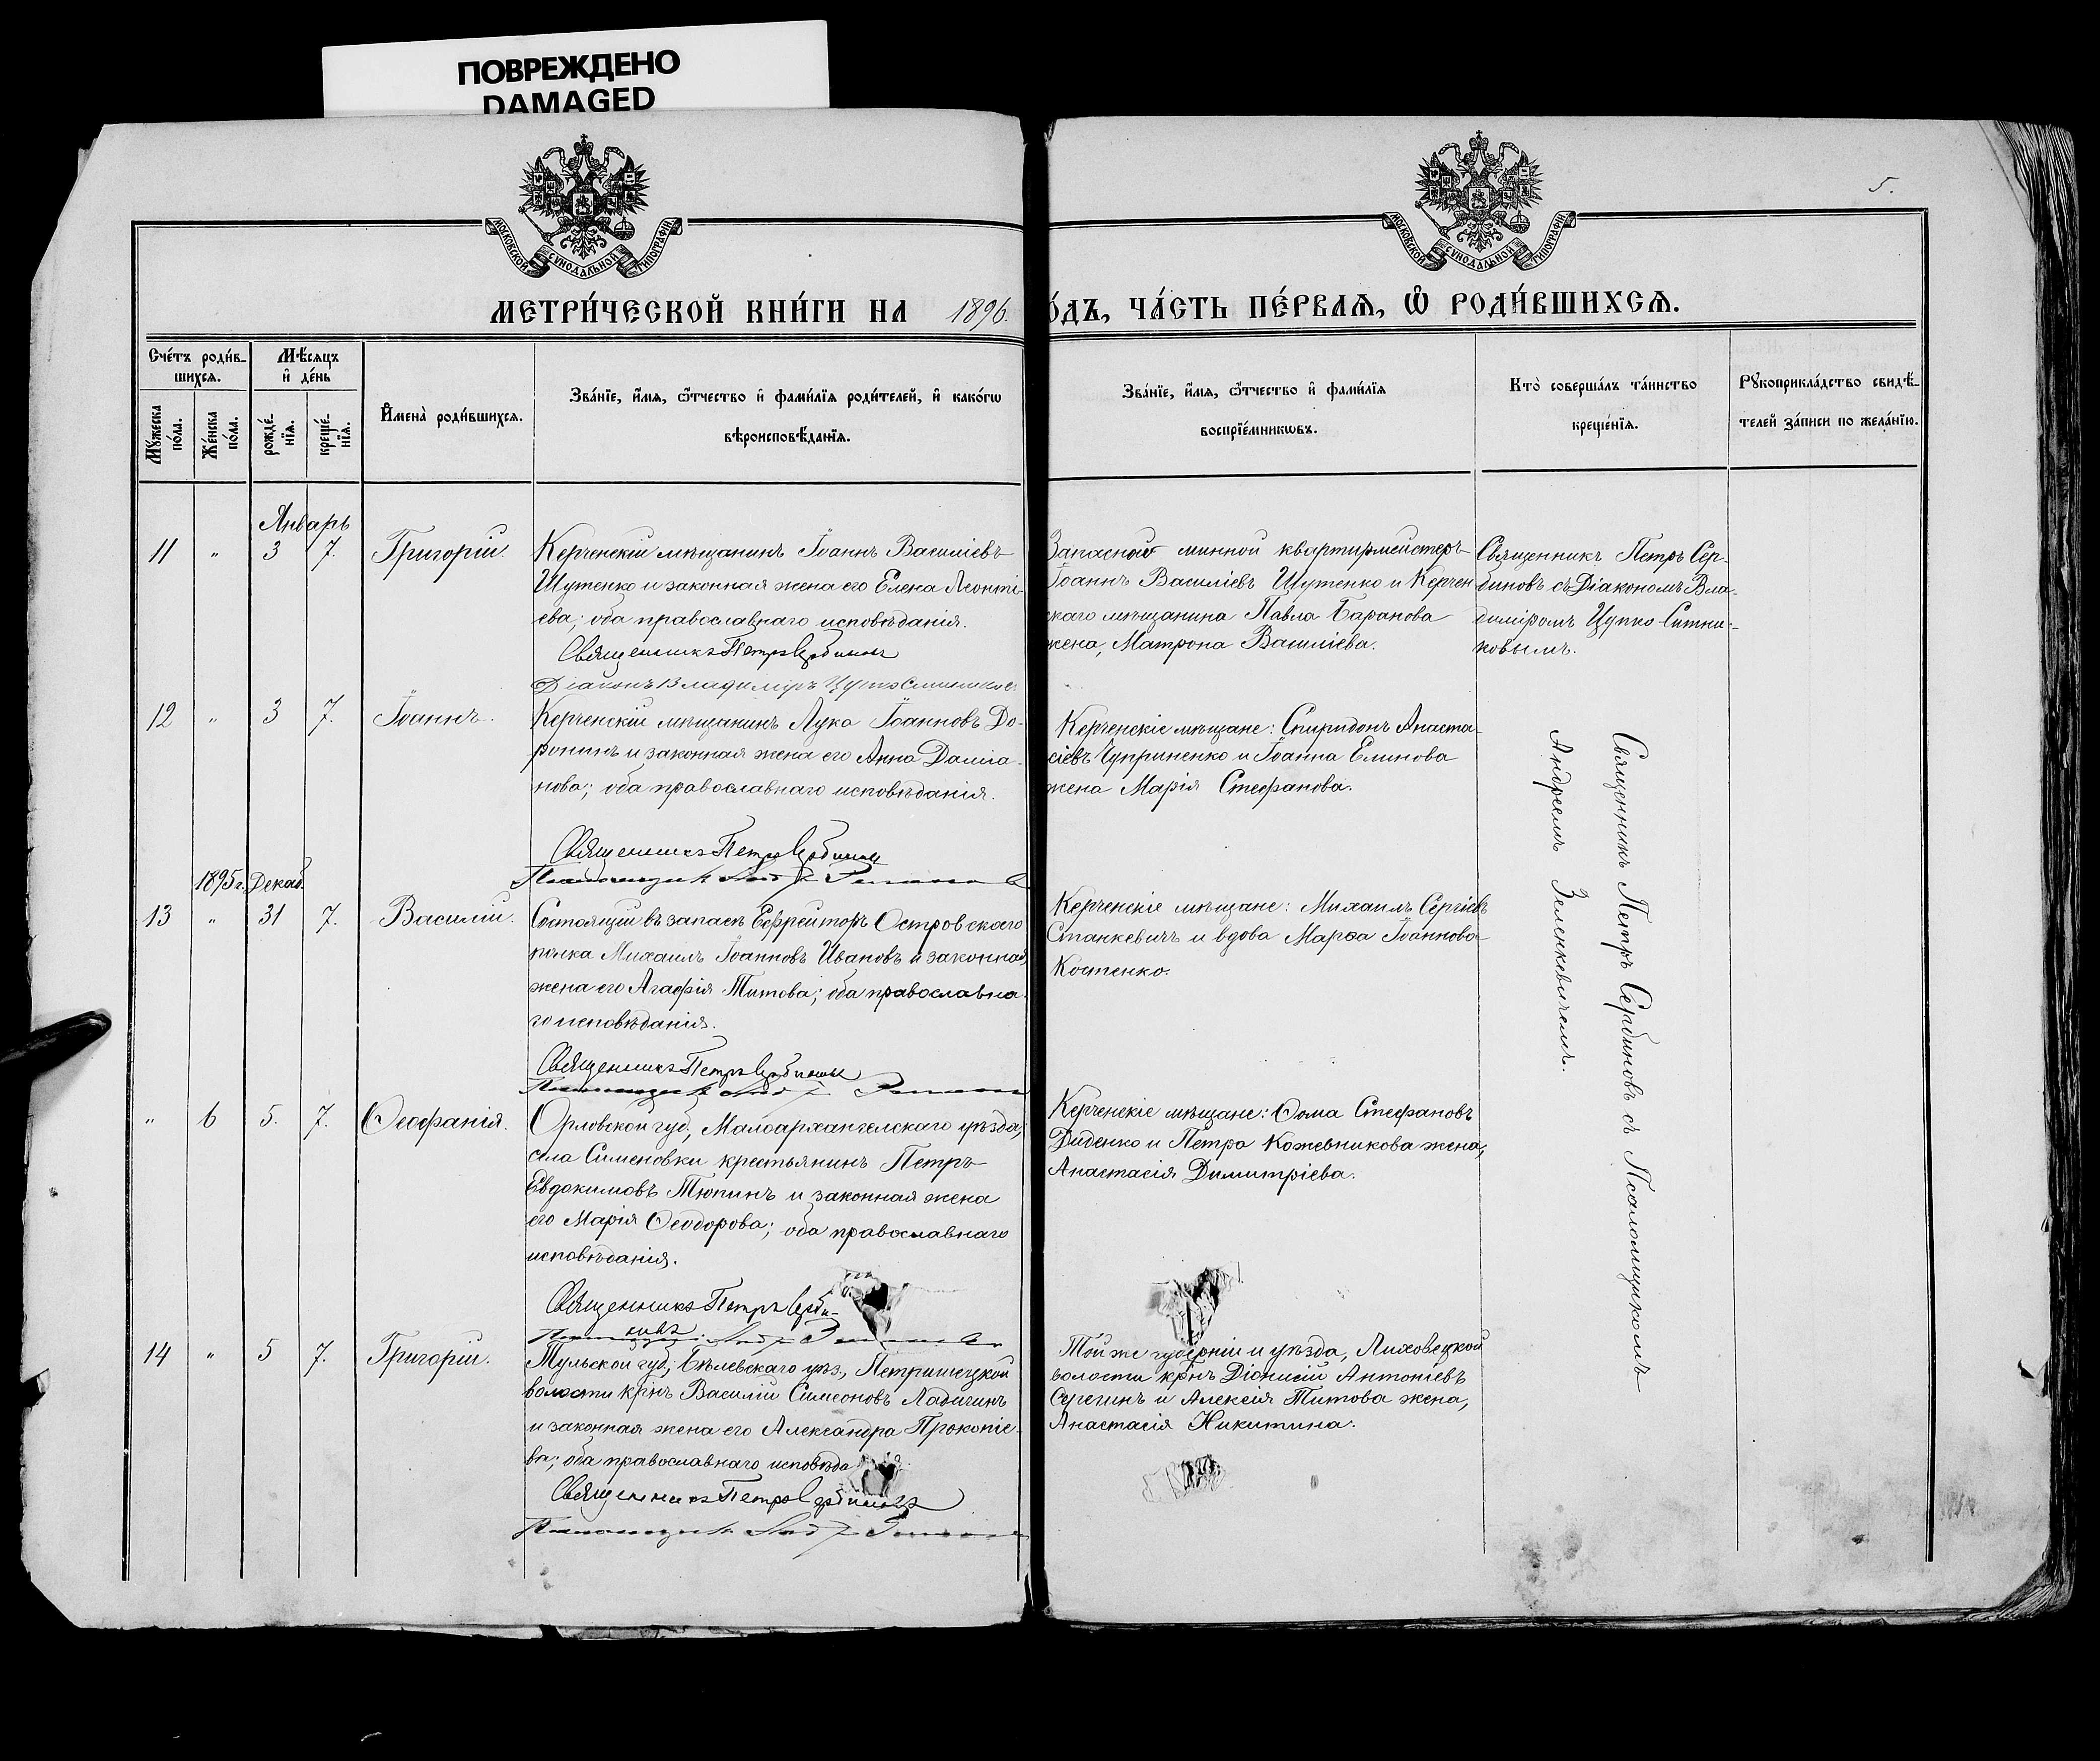 ПОВРЕЖДЕНО
DAMAGED
МОСКОВСКОЙ СѴНОДАЛЬНОЙ ТИПОГРАФІИ
МОСКОВСКОЙ СѴНОДАЛЬНОЙ ТИПОГРАФІИ
5.
МЕТРИ́ЧЕСКОЙ КНИ́ГИ НА 1896.
О́ДЪ, ЧА́СТЬ ПЕ́РВАѦ, Ѡ҆ РОДИ́ВШИХСѦ.
Сче́тъ роди́в-
шихсѧ.
Мѣ́сѧцъ
и҆ де́нь
Мꙋ́жеска
по́ла.
Же́нска
по́ла.
рожде́-
нїѧ.
креще́-
нїѧ.
И҆мена̀ роди́вшихсѧ.
Зва́нїе, и҆́мѧ, ѻ҆́тчество и҆ фами́лїѧ роди́телей, и҆ како́гѡ
вѣроисповѣ́данїѧ.
Зва́нїе, и҆́мѧ, ѻ҆́тчество и҆ фами́лїѧ
воспрїе́мникѡвъ.
Кто̀ соверша́лъ та́инство
креще́нїѧ.
Рꙋкоприкла́дство свидѣ́-
телей за́писи по жела́нїю.
Январь
11 " 3 7. Григорій.
Керченскій мѣщанинъ Іоаннъ Василіевъ
Шутенко и законная жена его Елена Леонті-
ева; оба православнаго исповѣданія.
Священникъ Петръ Сербиновъ
Діаконъ Владимiръ Цупко Ситников
Запасной минной квартирмейстеръ
Іоаннъ Василіевъ Шутенко и Керчен
скаго мѣщанина Павла Баранова
жена, Матрона Василіева.
Священникъ Петръ Сер-
биновъ съ Діакономъ Вла-
диміромъ Цупко-Ситни-
ковымъ.
12 " 3 7. Іоаннъ.
Керченскій мѣщанинъ Лука Іоанновъ До-
ронинъ и законная жена его Анна Даміа-
нова; оба православнаго исповѣданія.
Священникъ Петръ Сербиновъ
Псаломщикъ
Керченскіе мѣщане: Спиридонъ Анаста-
сіевъ Чуприненко и Іоанна Елинова
жена Марія Стефанова.
1895 г. Декаб.
13 " 31 7. Василій.
Состоящій въ запасѣ Ефрейторъ Островскаго
полка Михаилъ Іоанновъ Ивановъ и законная
жена его Агафія Титова; оба православна-
го исповѣданія.
Священникъ Петръ Сербиновъ
Псаломщикъ
Керченскіе мѣщане: Михаилъ Сергіевъ
Станкевичъ и вдова Марѳа Іоаннова
Костенко.
" 6 5. 7. Ѳеофанія.
Орловской губ., Малоархангелскаго уѣзда,
села Сименовки крестьянинъ Петръ
Евдокимовъ Тюпинъ и законная жена
его Марія Ѳеодорова; оба православнаго
исповѣданія.
Священникъ Петръ Серби-
новъ
Псаломщикъ
Керченскіе мѣщане: Ѳома Стефановъ
Диденко и Петра Кожевникова жена,
Анастасія Димитріева.
14 " 5 7. Григорій.
Тульской губ., Бѣлевскаго уѣз., Петрищецкой
волости крнъ Василій Симеоновъ Ладичинъ
и законная жена его Александра Прокопіе-
ва; оба православнаго исповѣда
Священникъ Петръ Сербиновъ
Псаломщикъ
Той же губерніи и уѣзда, Лиховецкой
волости крнъ Діонисій Антоніевъ
Серегинъ и Алексія Титова жена,
Анастасія Никитина.
Священникъ Петръ Сербиновъ съ Псаломщикомъ
Андреемъ Зеленкевичемъ.